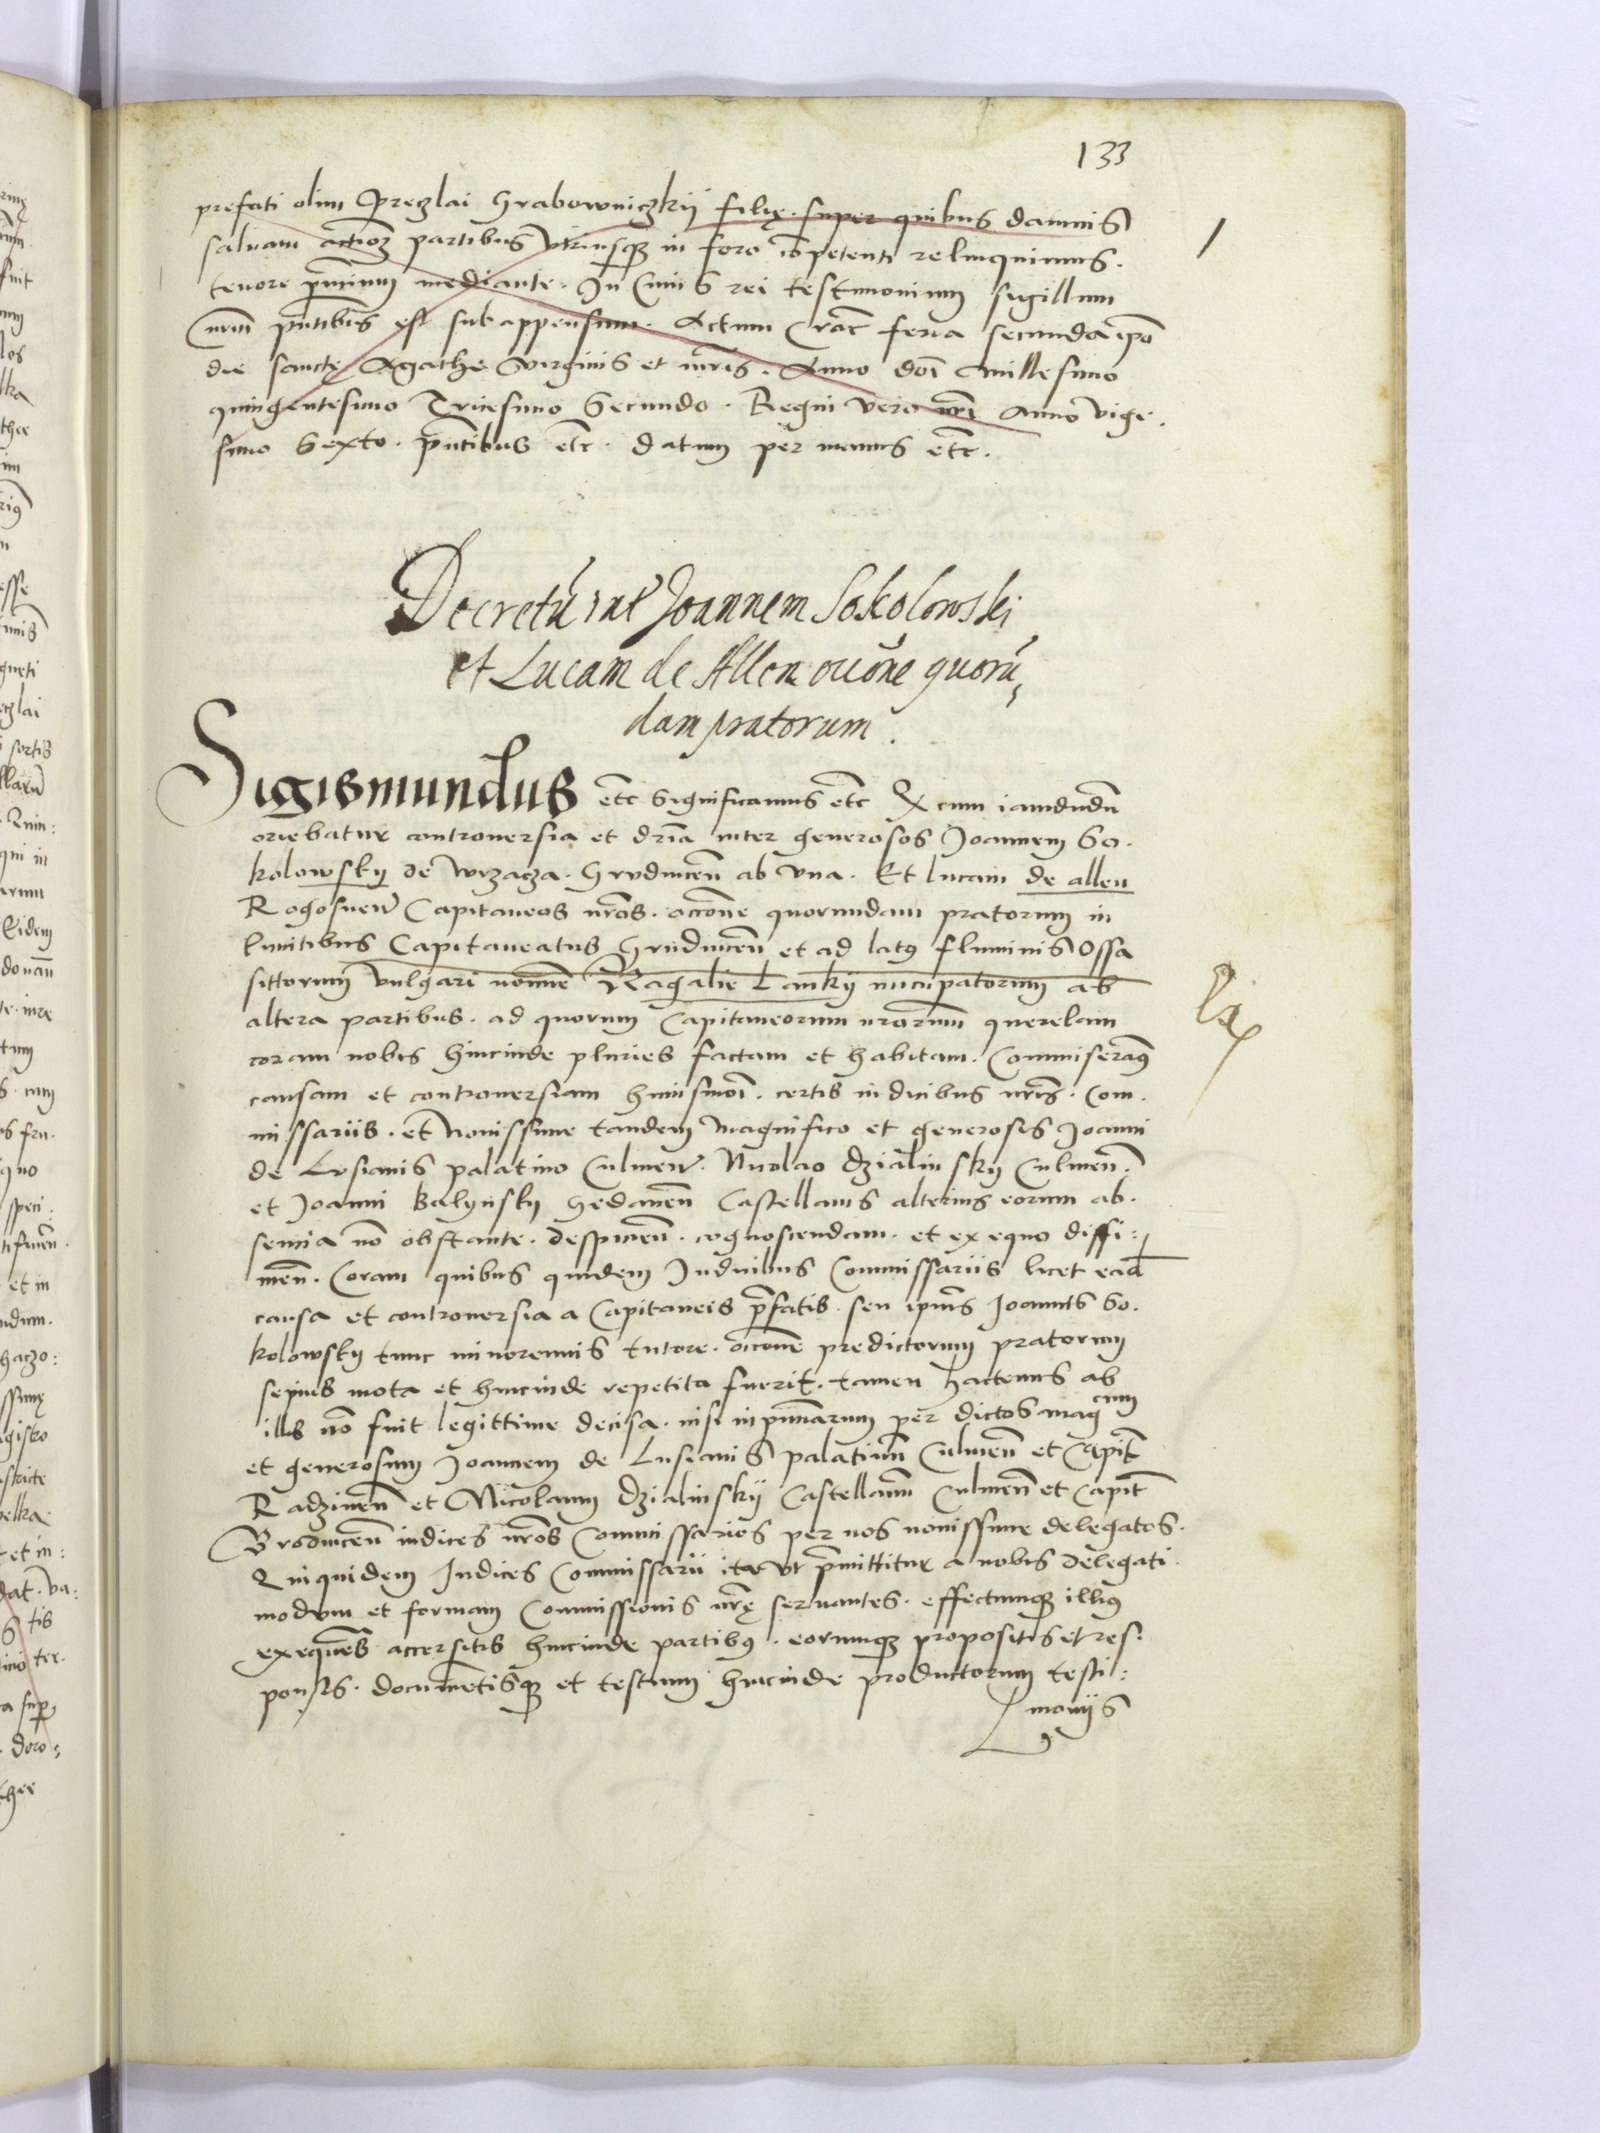 133
prefati olim Preczlai Grabowniczkij filię. super quibus damnis
saluam actioē partibus vtriusq in foro cōpetenti relinquimus.
tenore p̄ntium mediante. In Cuius rei testimonium sigillum
nr̄m p̄ntibus est subappensum. Actum Crac̄ feria secunda ipō
die sanctę Agathę virginis et mr̄is. Anno dnī Millesimo
quingentesimo Tricesimo Secundo. Regni vero nr̄i Anno vige.
simo Sexto. p̄ntibus etc̄. datum per manus etc̄.
Decretū int̄ Joannem Sokolowski
et Lucam de Allen occōne quorū
dam pratorum.
Sigismundus etc̄ Significamus etc̄ Q cum iamdudū
oriebatur controuersia et dr̄ia inter generosos Joannem So.
kolowskij de Wrzacza. Grudincen̄ ab vna. Et lucam de allen
Rogosnen̄ Capitaneos nr̄os. occōne quorundam pratorum in
limitibus Capitaneatus Grudincen̄ et ad latq fluminis Ossa
sittorum vulgari nomine Nagalie Lankij nuncupatorum ab
altera partibus. ad quorum Capitaneorum nr̄orum querelam
coram nobis hincinde pluries factam et habitam. Commiseramq
causam et controuersiam huiusmōi. certis iudicibus nr̄is. Com.
missariis. et nouissime tandem Magnifico et generosis Joanni
de Lusianis palatino Culmen̄. Nicolao Dzialinskij Culmen̄.
et Joanni Balynskij Gedanen̄ Castellanis alterius eorum ab.
sencia nō obstante. despicien̄. cognoscendam. et ex equo diffi:
nien̄. Coram quibus quidem Iudicibus Commissariis licet eadē
causa et controuersia a Capitaneis p̄fatis. seu ipiūs Joannis So.
kolowskij tunc minorennis tutore. occōne predictorum pratorum
sepius mota et hincinde repetita fuerit. tamen hactenus ab
illis nō fuit legittime decisa. nisi inp̄m̄arum per dictos mag cum
et generosum Joannem de Lusianis palatinū Culmen̄ et Capit̄
Radzinen̄ et Nicolaum Dzialinskij Castellanū Culmen̄ et Capit̄
Brodnicen̄ iudices nr̄os Commissarios per nos nouissime delegatos.
Qui quidem Iudices Commissarii ita vt p̄mittitur a nobis delegati.
modum et formam Commissionis nr̄ę seruantes. effectumq illiq
exequen̄tes accersitis hincinde partibq. eorumq propositis et res.
ponsis. documētisq et testium hincinde productorum testi:
moniis